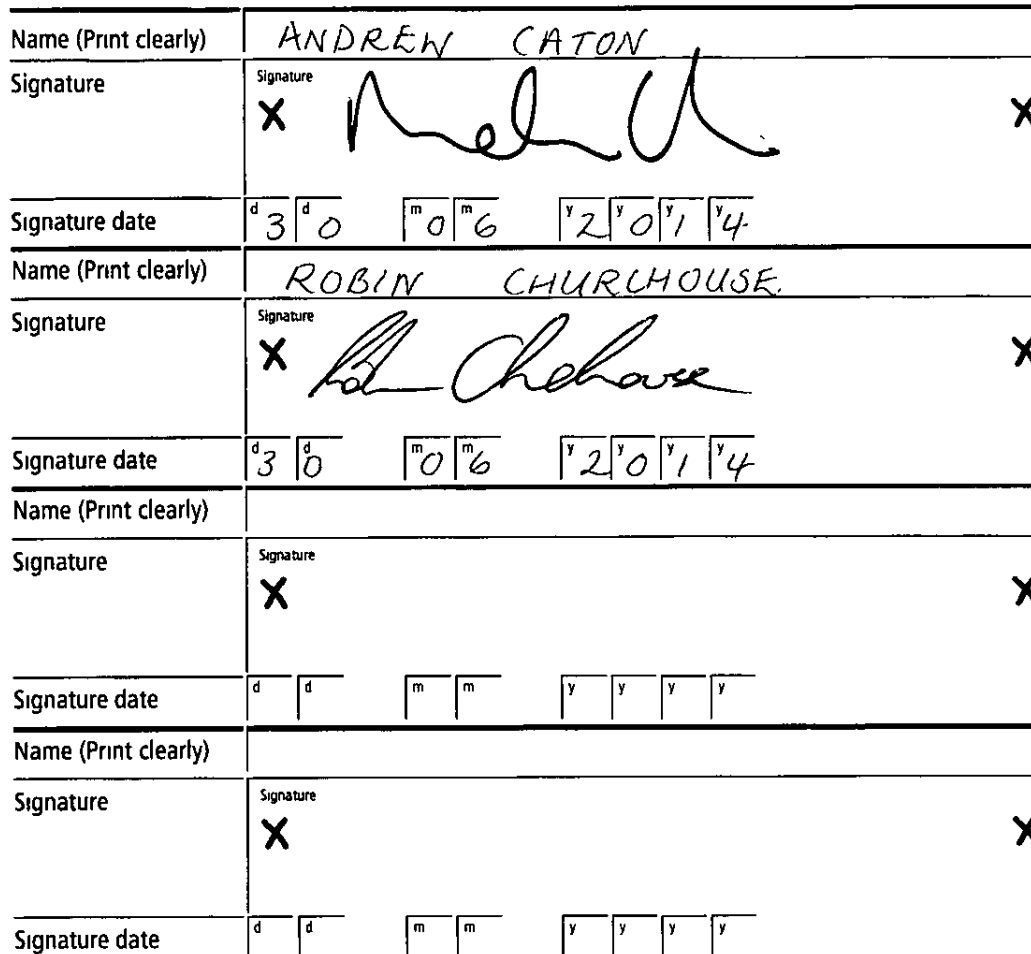 Name (Print clearly) ANDREW CATON
Signature Signature
X X
Signature date d3 d0 m0 m6 y2 y0 y1 y4
Name (Print clearly) ROBIN CHURCHOUSE.
Signature Signature
X Robin Churchouse X
Signature date d3 d0 m0 m6 y2 y0 y1 y4
Name (Print clearly)
Signature Signature
X X
Signature date d d m m y y y y
Name (Print clearly)
Signature Signature
X X
Signature date d d m m y y y y